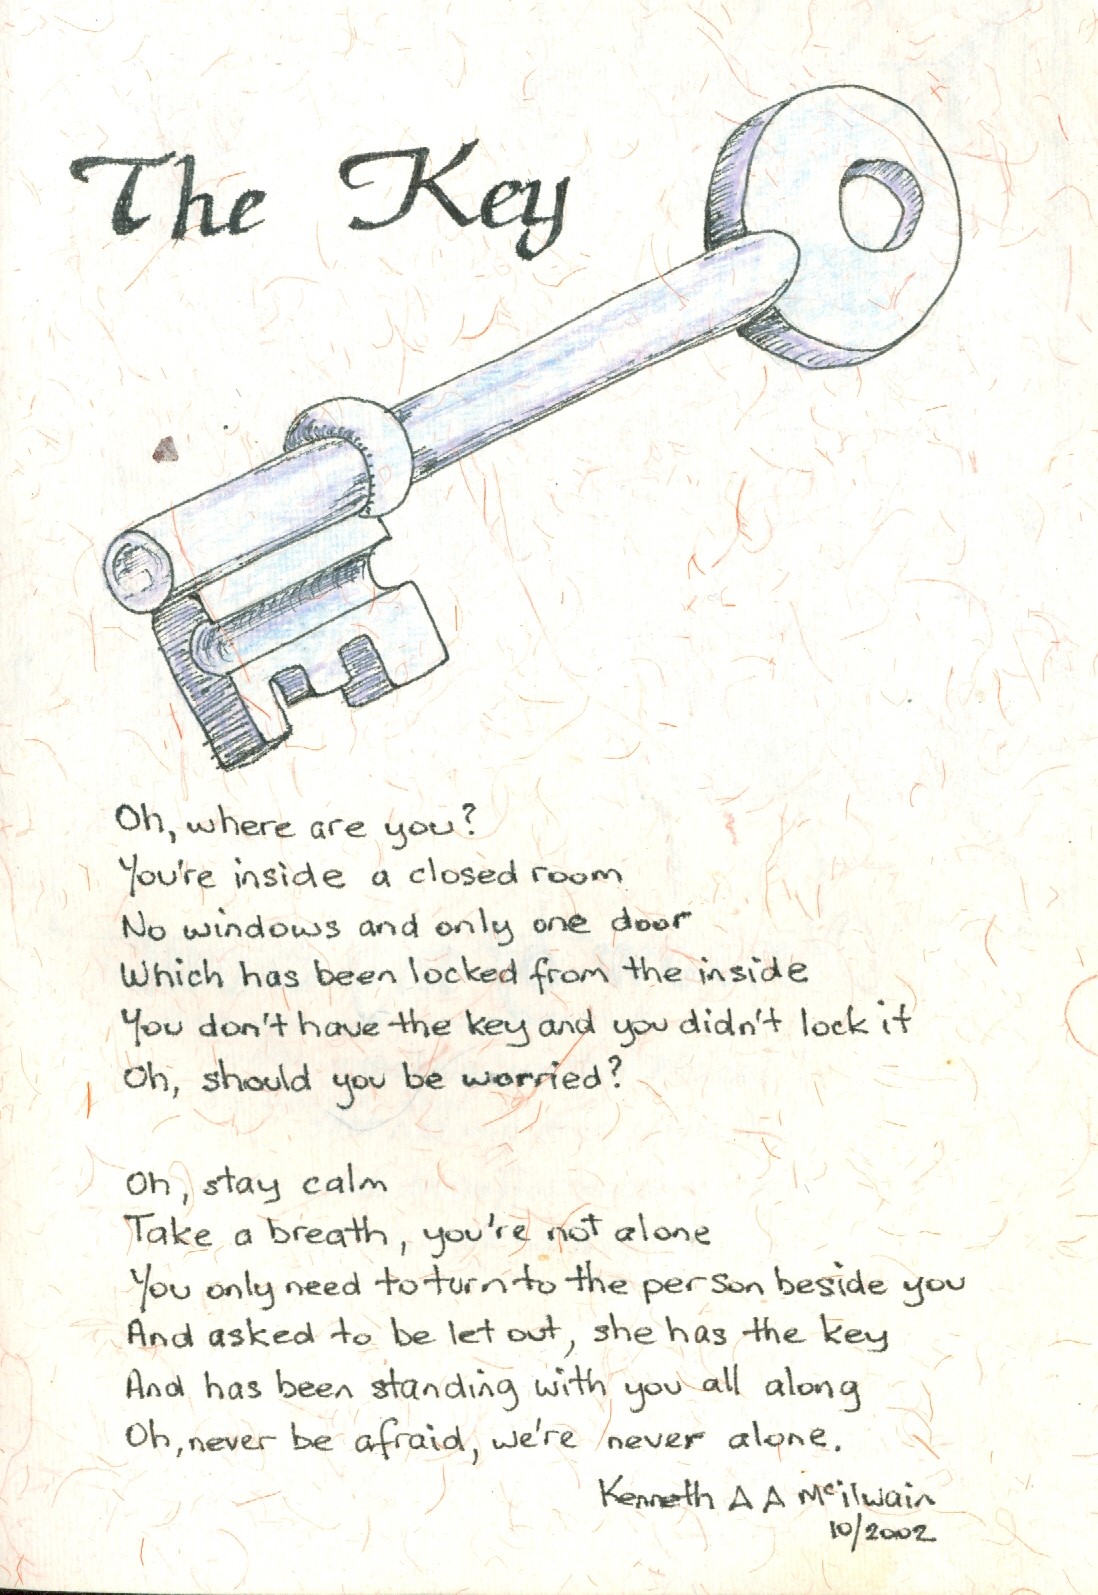 The Key
Oh, where are you?
You're inside a closed room
No windows and only one door
Which has been locked from the inside
You don't have the key and you didn't lock it
Oh, should you be worried?
Oh, stay calm
Take a breath, you're not alone
You only need to turn to the person beside you
And asked to be let out, she has the key
And has been standing with you all along
Oh, never be afraid, we're never alone.
Kenneth A A McIlwain
10/2002